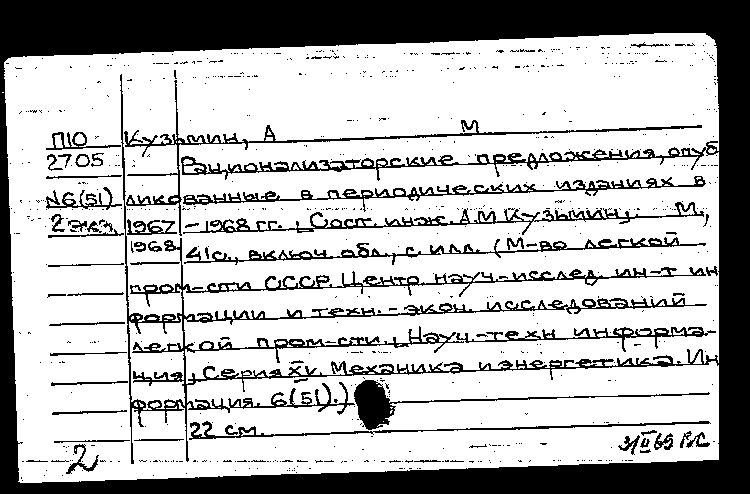 П10 Кузьмин, А М
2705 Рационализаторские предложения, опуб
N6(51) ликованные в периодических изданиях в
2 экз. 1967 - 1968 гг. , Сост. инж. А М Кузьмин, М.,
1968 41с., включ. обл., с илл. (М-во легкой
пром-сти СССР. Центр. науч.-исслед. ин-т ин
формации и техн.-экон. исследований
легкой пром-сти. , Науч.-техн информа-
ция, Серия XV. Механика и энергетика. Ин
формация. 6(51).)
22 см.
2 3/II 69